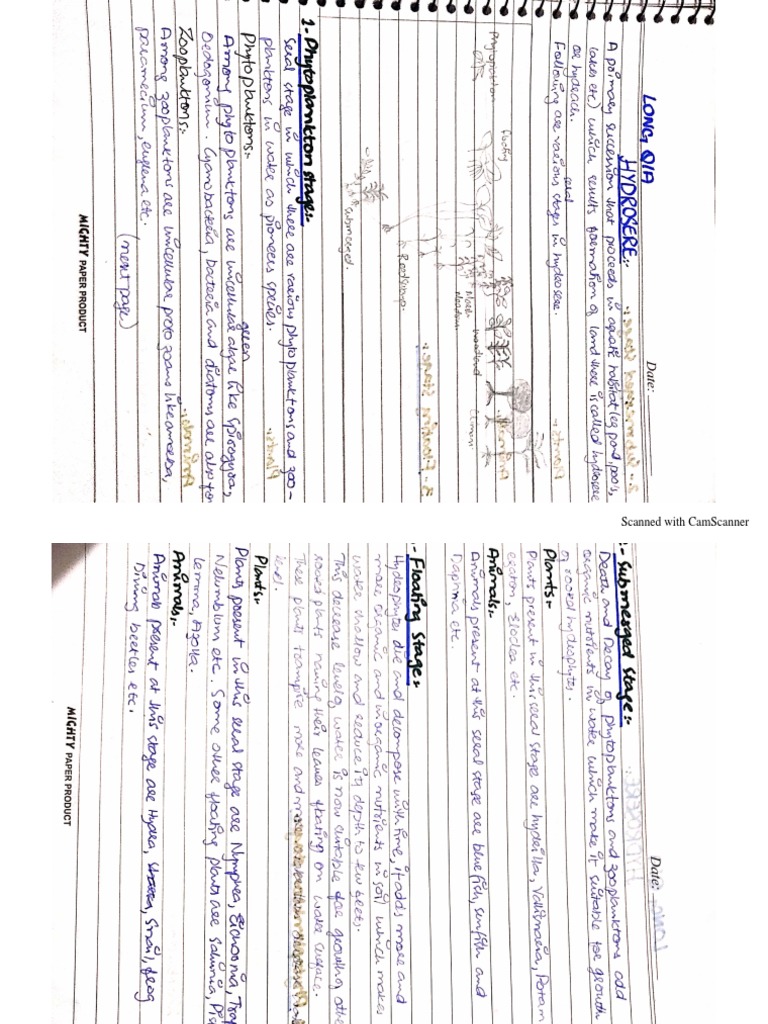 Date:
LONG Q/A
HYDROSERE:-
A primary succession that proceeds in aquatic habitat (eg pond, pools,
lakes etc) which results formation of land there is called hydrosere
or hydrach.
seral
Following are various stages in hydrosere.
Phytoplankton
floating
Reed
Meadow
woodland
Climax
Reedswamp
submerged.
1- Phytoplankton stage:-
Seral stage in which there are various phytoplanktons and zoo-
planktons in water as pioneers species.
Phytoplanktons:-
green
Among phytoplanktons are unicellular algae like Spirogyra,
Oedogonium. Cyanobacteria, bacteria and diatoms are also
Zooplanktons:-
Among zooplanktons are unicellular protozoans like amoeba,
paramecium, euglena etc.
(next page)
MIGHTY PAPER PRODUCT
Scanned with CamScanner
Date:
:- Submerged Stage:-
Death and Decay of phytoplanktons and zooplanktons add
organic nutrients in water which make it suitable for growth
of rooted hydrophytes.
Plants:-
Plants present in this seral stage are hydrilla, Vallisnaria, Potam
ogeton, Elodea etc.
Animals:-
Animals present at this seral stage are blue fish, sunfish and
Dapnia etc.
:- Floating Stage:-
Hydrophytes die and decompose with time, it adds more and
more organic and inorganic nutrients in soil which makes
water shallow and reduce its depth to few feets.
This decrease level of water is now suitable for growth of othe
rooted plants having their leaves floating on water surface.
These plants transpire more and
level.
Plants:-
Plants present in this seral stage are Nymphea, Eichornia, Trap
Nelumbium etc. Some other floating plants are Salvinia, Pis
Lemna, Azolla.
Animals:-
Animals present at this stage are Hydra, Snail, frog
Diving beetles etc.
MIGHTY PAPER PRODUCT